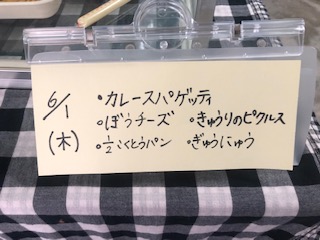 6/1
(木)
・カレースパゲッティ
・ぼうチーズ ・きゅうりのピクルス
・1/2こくとうパン ・ぎゅうにゅう